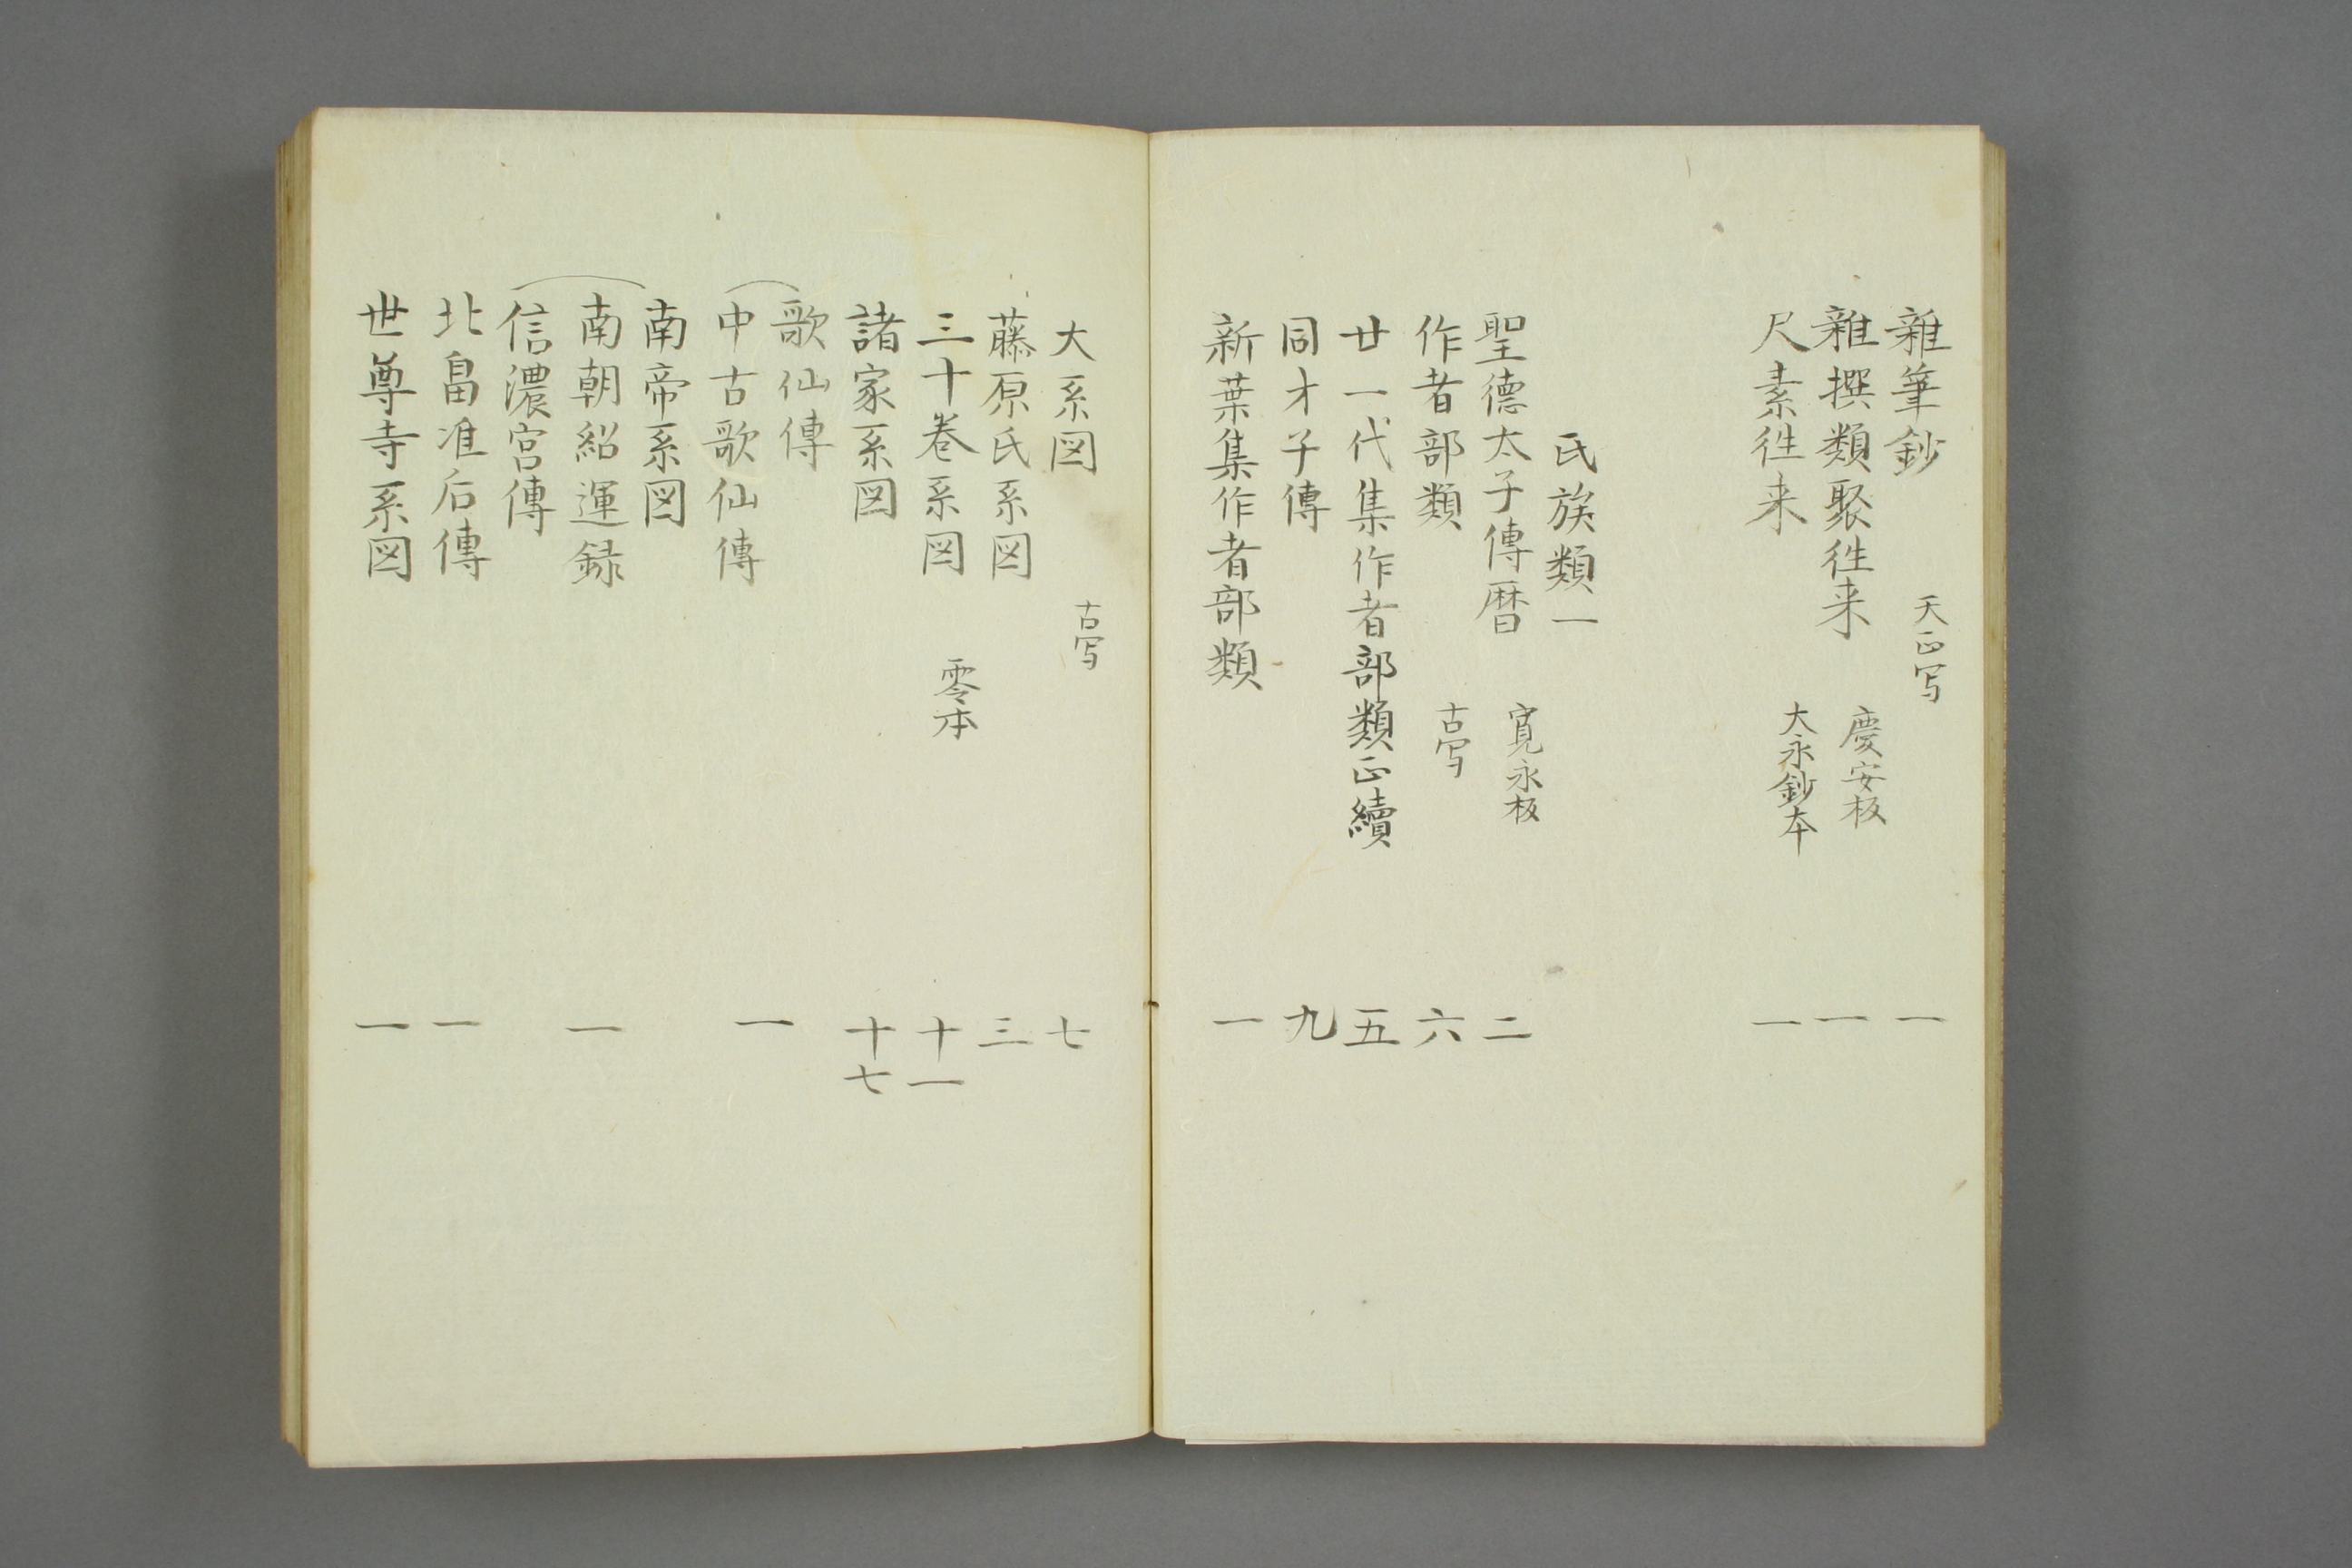 雜筆鈔 天正写 一
雜撰類聚徃来 慶安板 一
尺素徃来 大永鈔本 一
氏族類一
聖德太子傳暦 寛永板 二
作者部類 古写 六
廿一代集作者部類正續 五
同才子傳 九
新葉集作者部類 一
大系図 古写 七
藤原氏系図 三
三十巻系図 零本 十一
諸家系図 十七
歌仙傳
中古歌仙傳 一
南帝系図
南朝紹運録 一
信濃宮傳
北畠准后傳 一
世尊寺系図 一